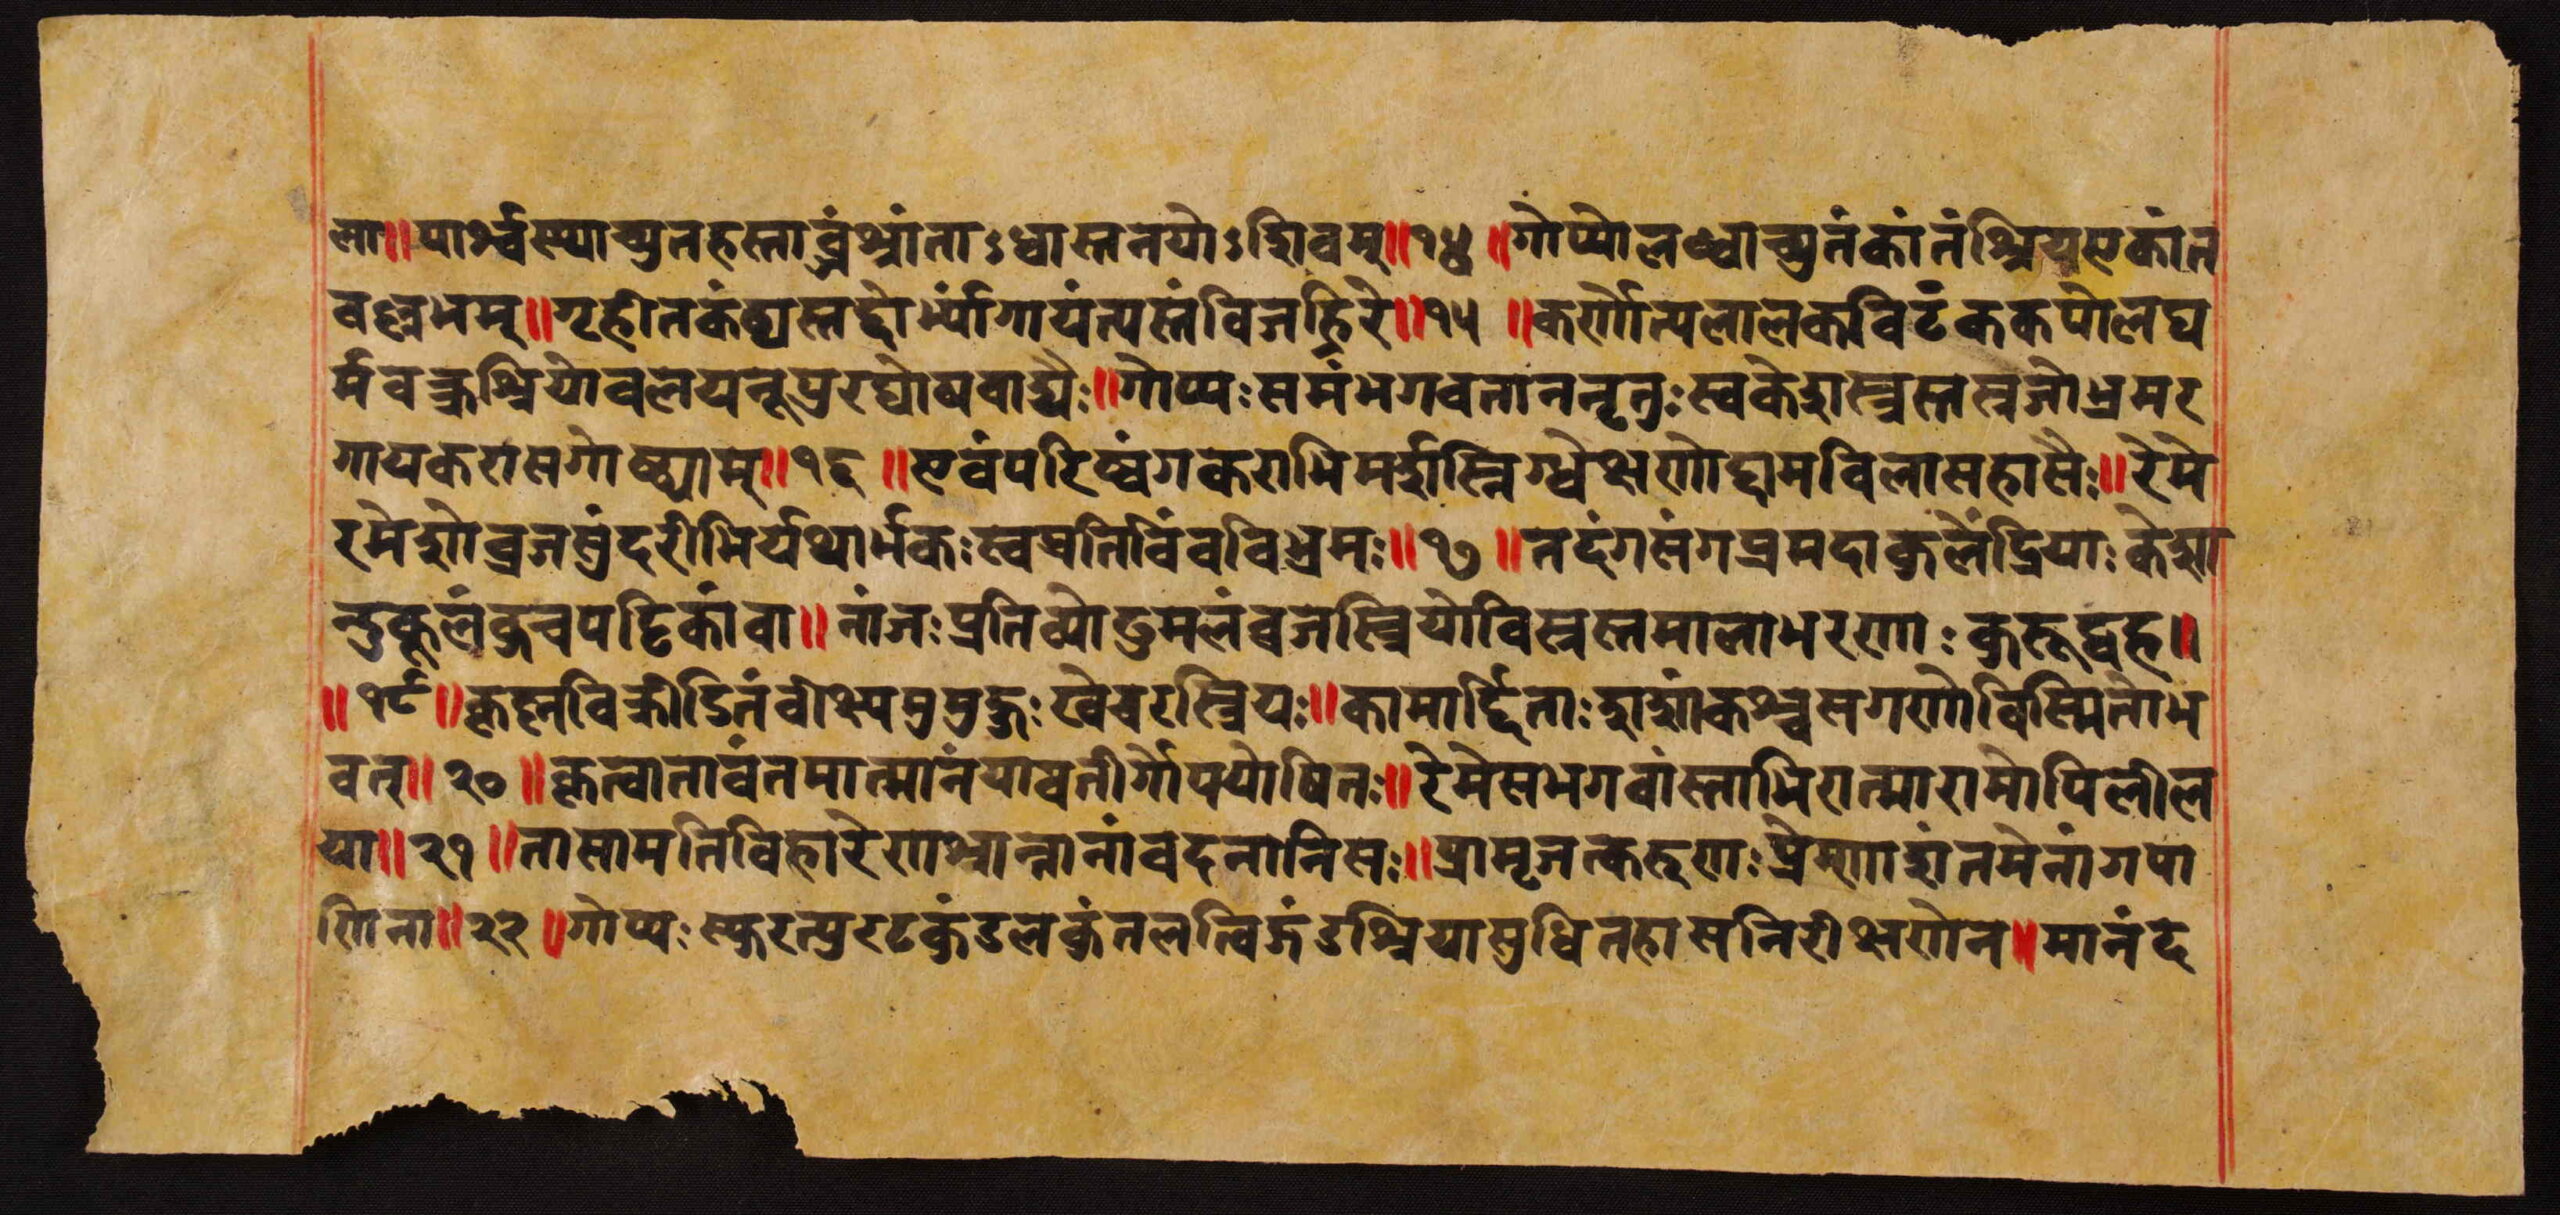 ला॥पार्श्वस्थाच्युतहस्ताब्जंश्रांताऽधात्स्तनयोःशिवम्॥१४॥गोप्योलब्ध्वाच्युतंकांतंश्रियएकांत
वल्लभम्॥गृहीतकंठ्यस्तद्दोर्भ्यांगायंत्यस्तंविजह्रिरे॥१५॥कर्णोत्पलालकविटंककपोलघ
र्मवक्त्रश्रियोवलयनूपुरघोषवाद्यैः॥गोप्यःसमंभगवताननृतुःस्वकेशस्रस्तस्रजोभ्रमर
गायकरासगोष्ठ्याम्॥१६॥एवंपरिष्वंगकराभिमर्शस्निग्धेक्षणोद्दामविलासहासैः॥रेमे
रमेशोव्रजसुंदरीभिर्यथार्भकःस्वप्रतिविंवविभ्रमः॥१७॥तदंगसंगप्रमदाकुलेंद्रियाःकेशा
न्दुकूलंकुचपट्टिकांवा॥नांजःप्रतिव्योढुमलंव्रजस्त्रियोविस्रस्तमालाभरणाःकुरूद्वह॥
॥१८॥कृष्णविक्रीडितंवीक्ष्यमुमुहुःखेचरस्त्रियः॥कामार्द्दिताःशशांकश्चसगणोविस्मितोभ
वत्॥२०॥कृत्वातावंतमात्मानंयावतीर्गोपयोषितः॥रेमेसभगवांस्ताभिरात्मारामोपिलील
या॥२१॥तासामतिविहारेणश्रान्तानांवदनानिसः॥प्रामृजत्करुणःप्रेम्णाशंतमेनांगपा
णिना॥२२॥गोप्यःस्फुरत्पुरटकुंडलकुंतलत्विड्गंडश्रियासुधितहासनिरीक्षणेन॥मानंद